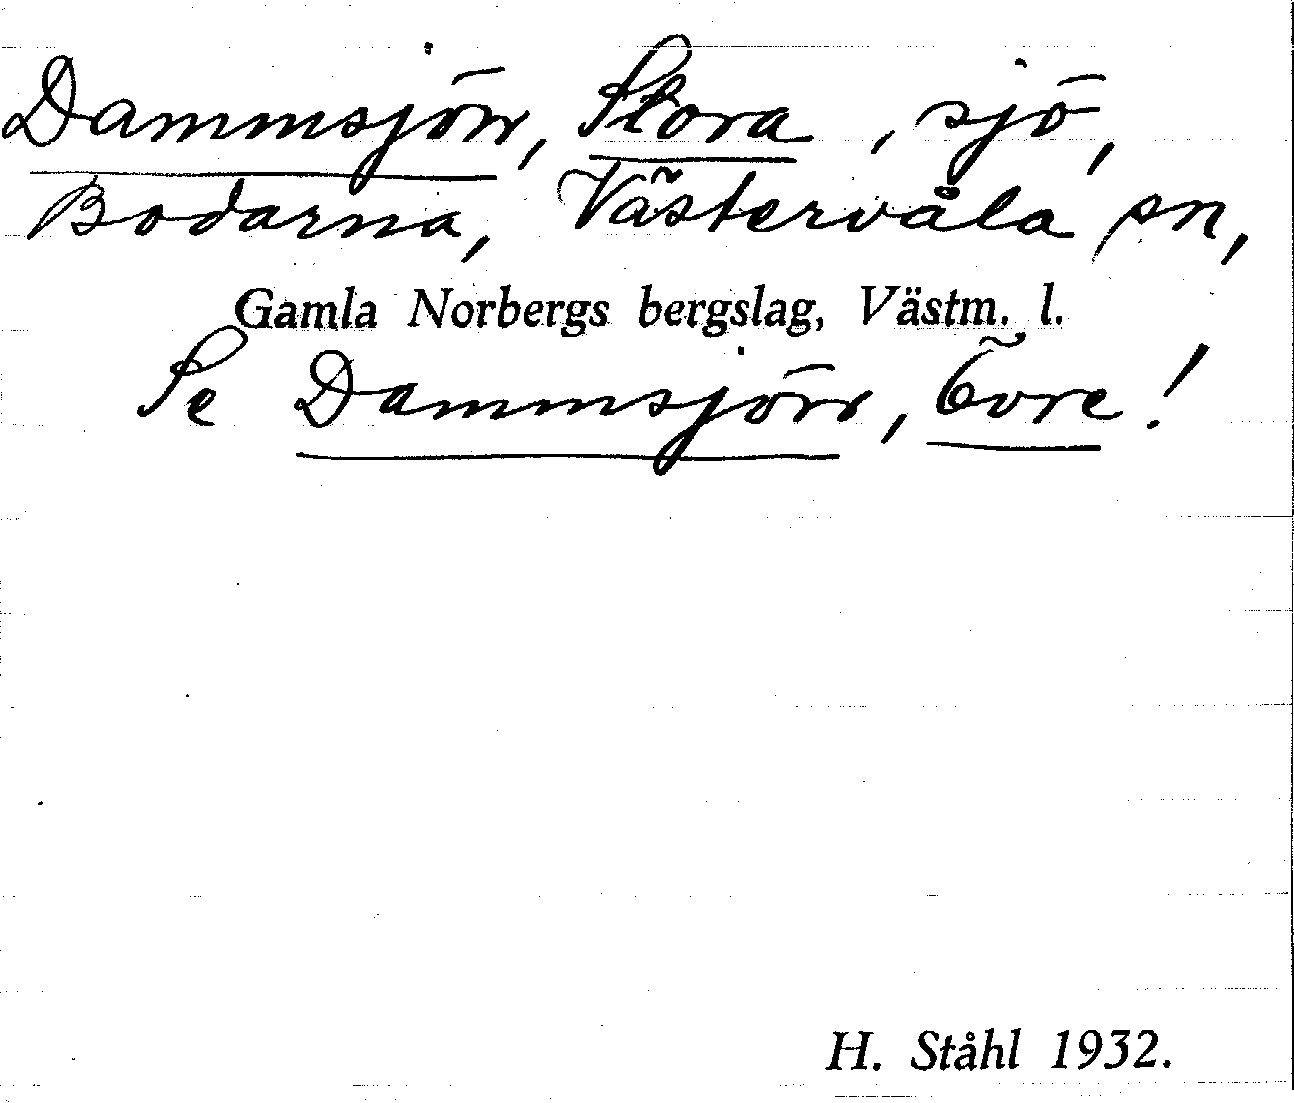 Dammsjön, Stora, sjö,
Bodarna, Västervåla sn,
Gamla Norbergs bergslag, Västm. l.
Se Dammsjön, Övre!
H. Ståhl 1932.